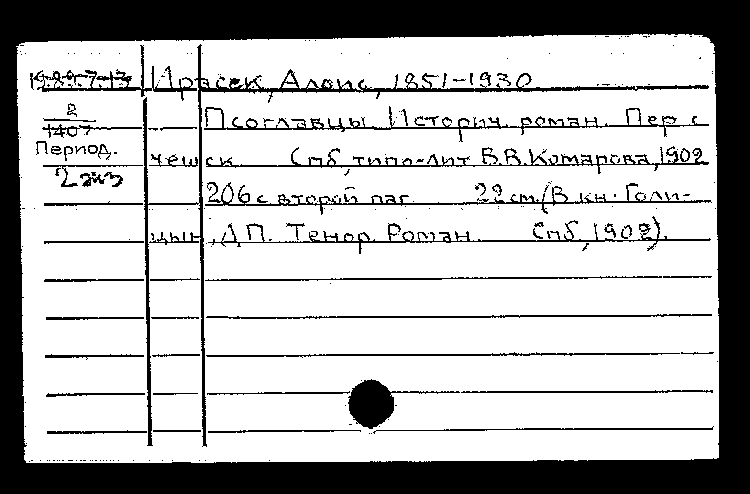 Ирасек, Алоис, 1851-1930
2
1407
Период.
2 экз
Псоглавцы. Историч. роман. Пер с
чешск. Спб, типо-лит. В.В. Комарова, 1902
206 с второй паг. 22 см. (В кн. Голи-
цын, Д.П. Тенор. Роман. Спб, 1902).